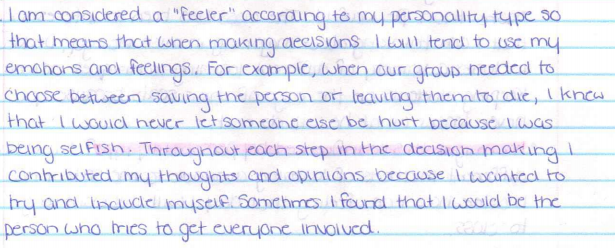 I am considered a "feeler" according to my personality type so
that means that when making decisions I will tend to use my
emotions and feelings. For example, when our group needed to
choose between saving the person or leaving them to die, I knew
that I would never let someone else be hurt because I was
being selfish. Throughout each step in the decision making I
contributed my thoughts and opinions because I wanted to
try and include myself. Sometimes I found that I would be the
person who tries to get everyone involved.